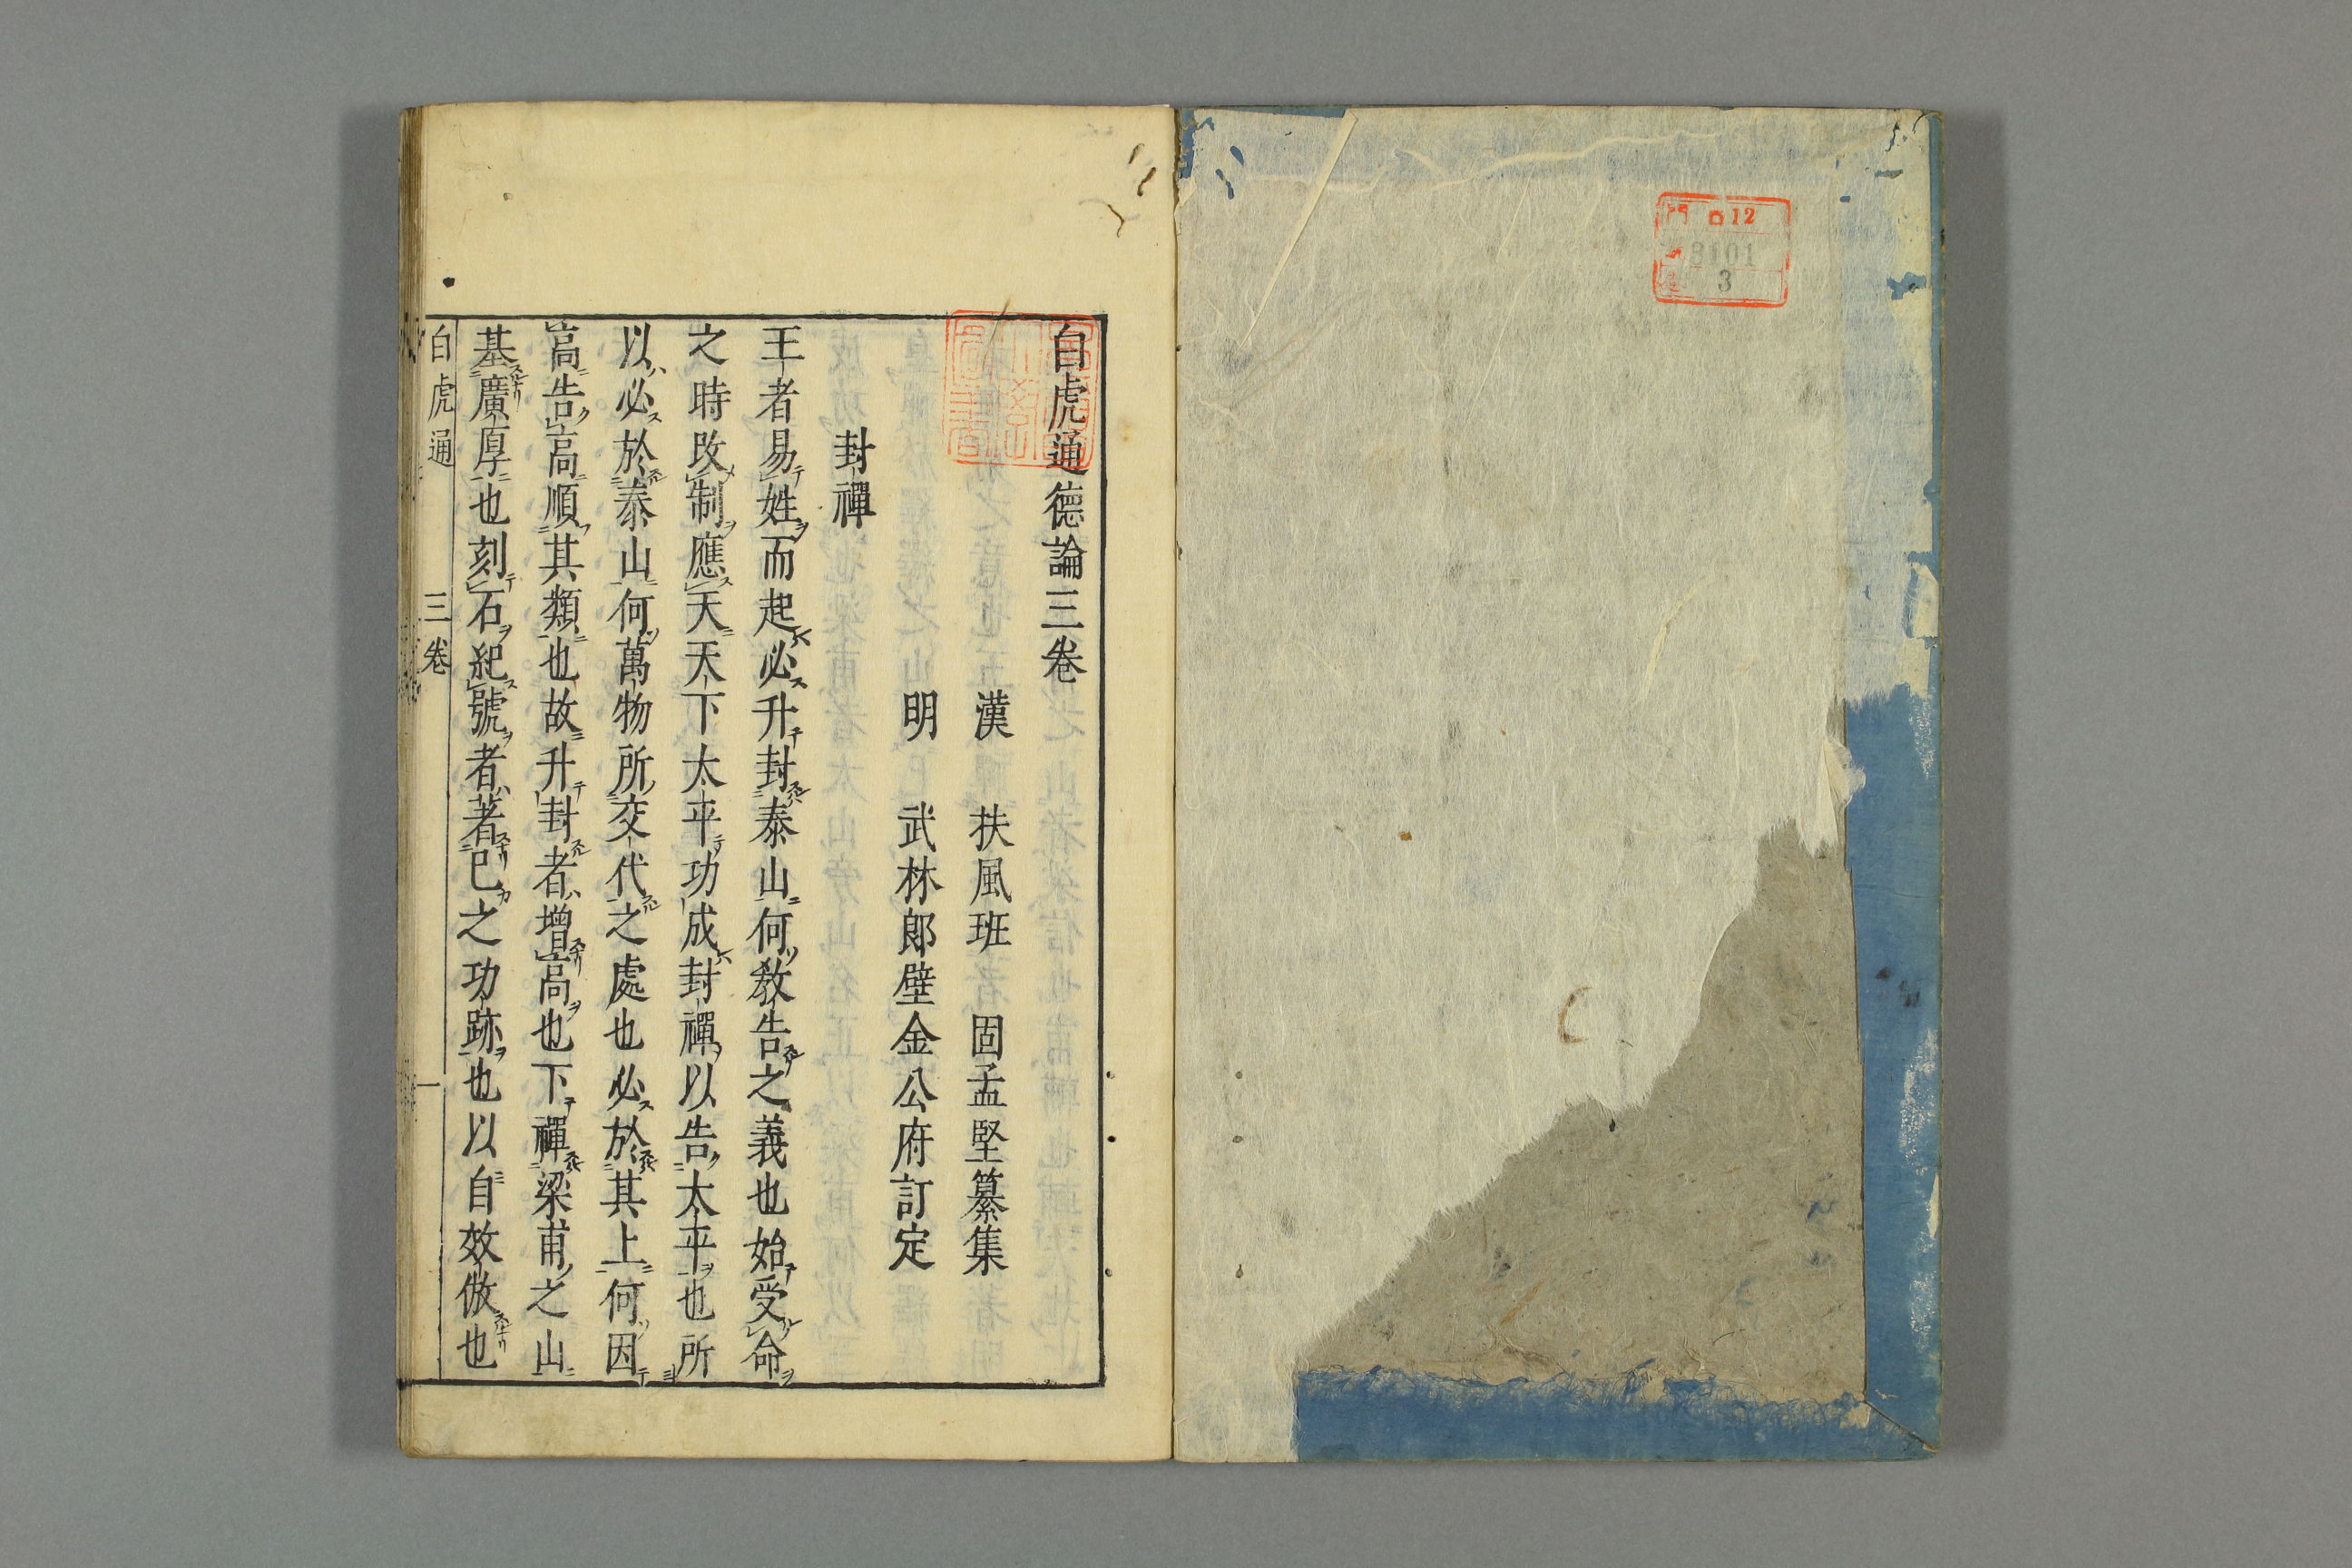 門 ロ12
3101
3
白虎通德論三卷
漢 扶風班 固孟堅纂集
明 武林郎壁金公府訂定
封禪
王者易姓而起必升封泰山何敎告之義也始受命
之時改制應天天下太平功成封禪以告太平也所
以必於泰山何萬物所交代之處也必於其上何因
高告高順其類也故升封者增高也下禪梁甫之山
基廣厚也刻石紀號者著已之功跡也以自效倣也
白虎通 三卷 一